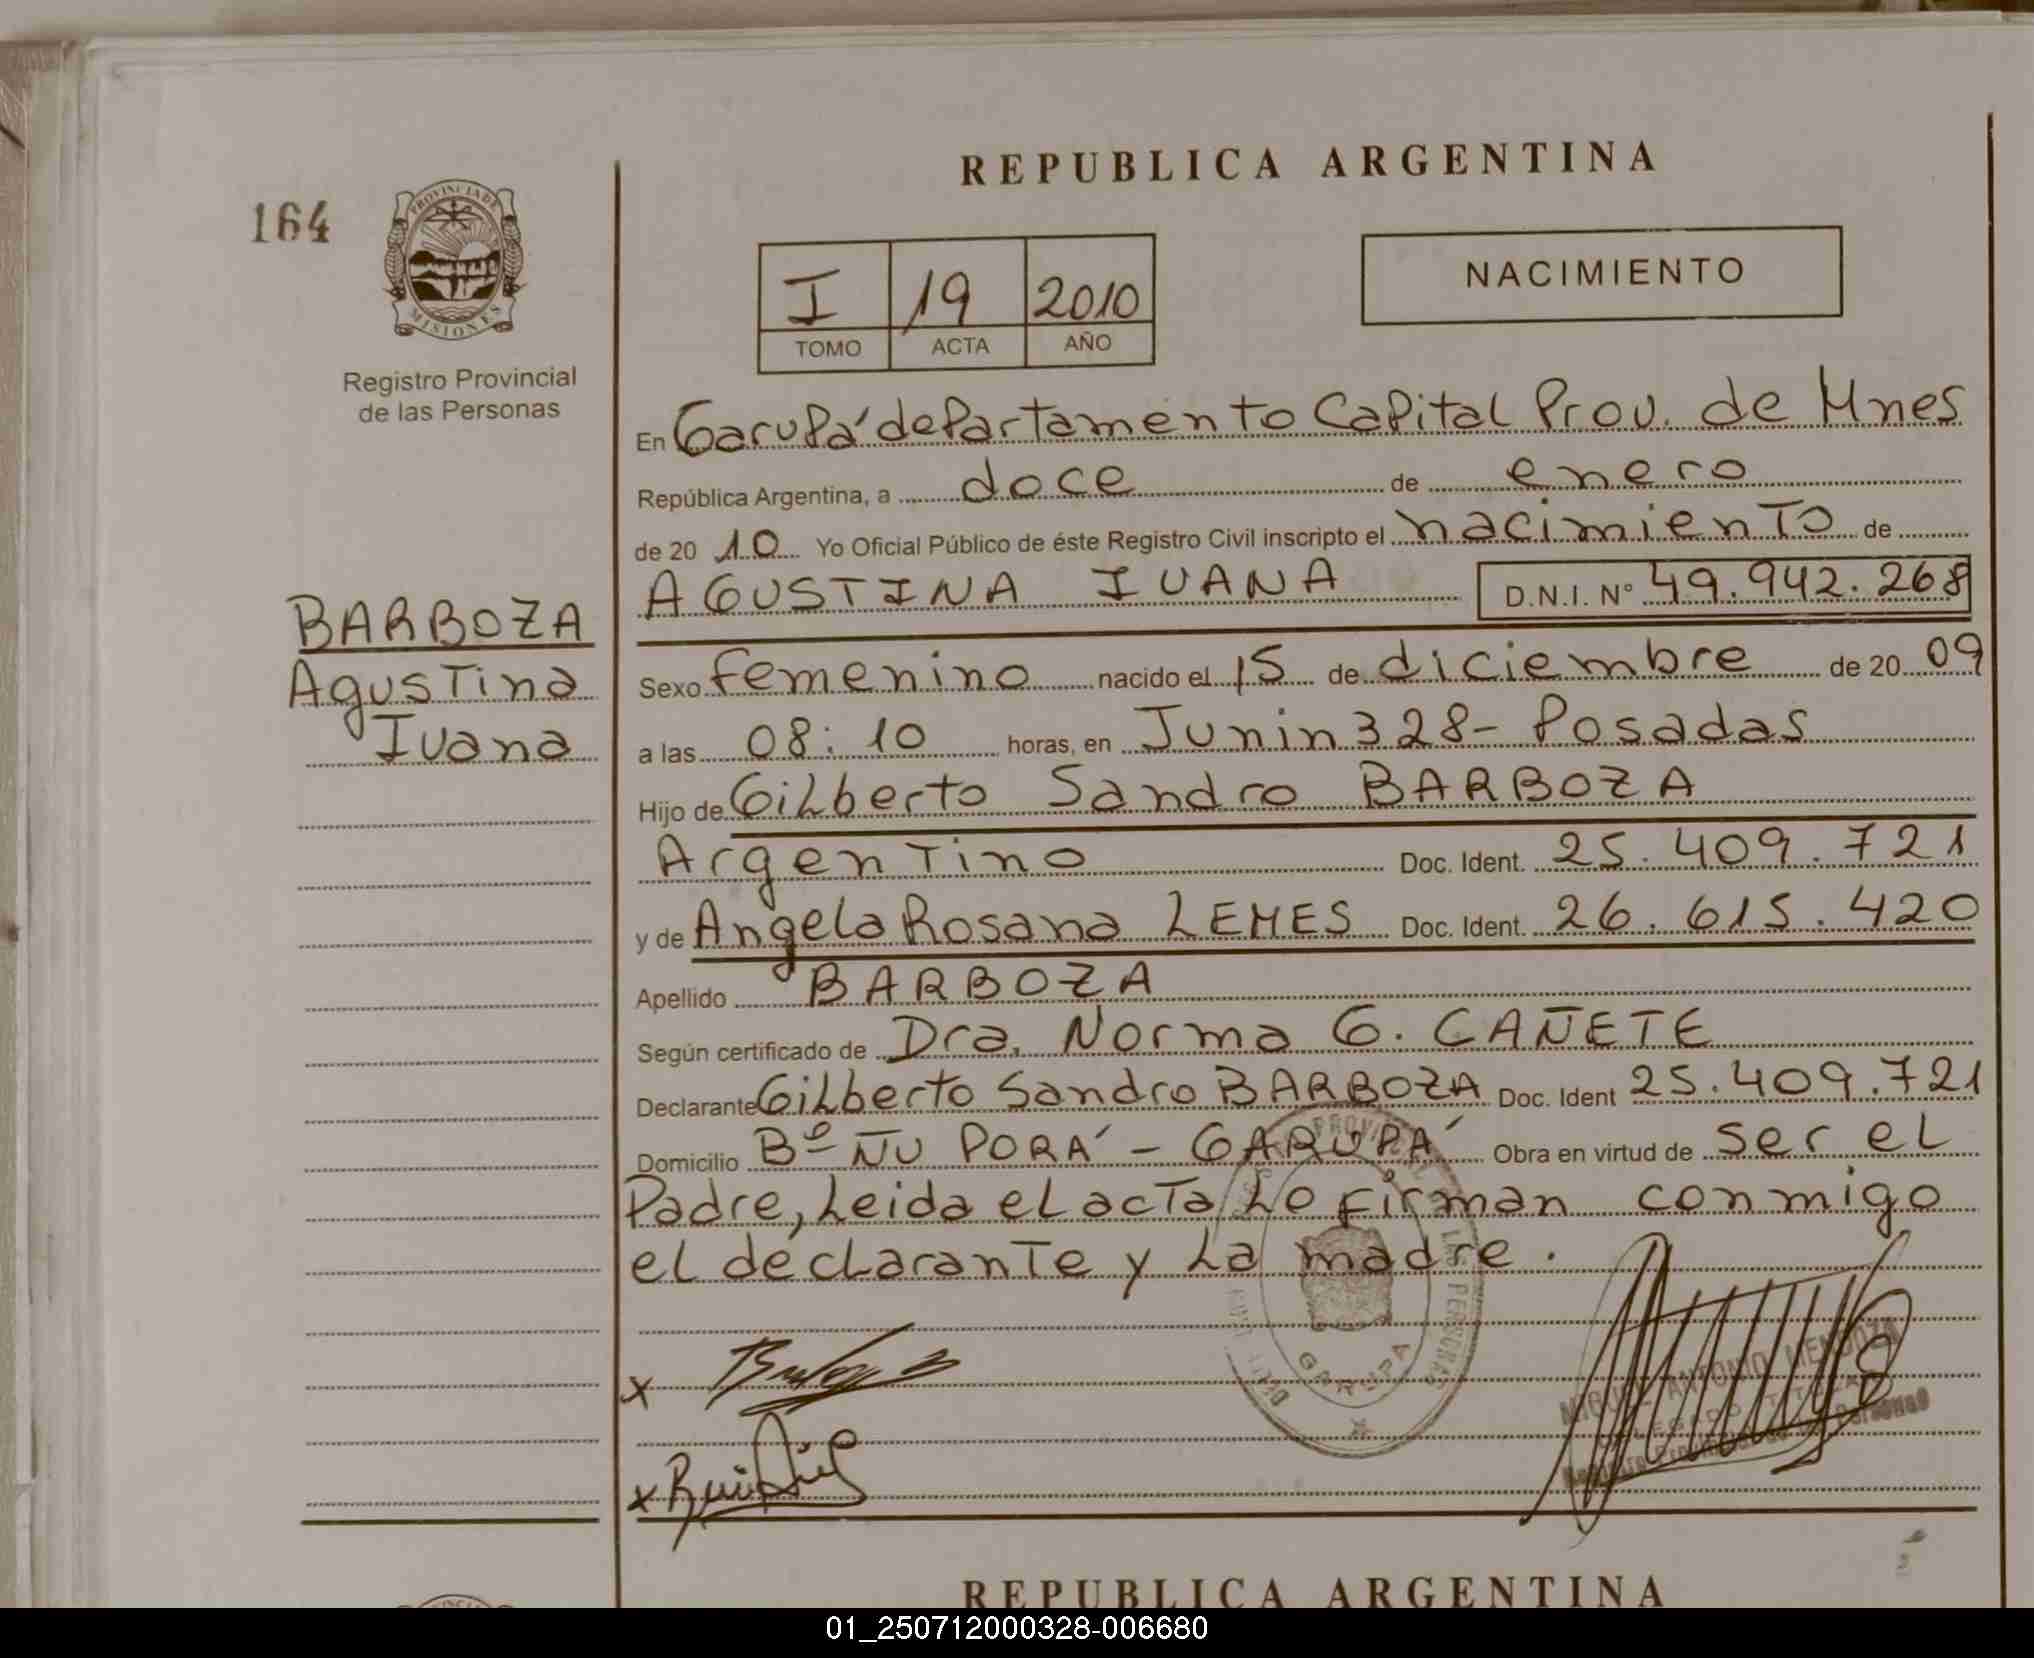 REPUBLICA ARGENTINA
164
PROVINCIA DE
MISIONES
Registro Provincial
de las Personas
I 19 2010
TOMO ACTA AÑO
NACIMIENTO
En Garupá departamento Capital Prov. de Mnes
República Argentina, a doce de enero
de 2010 Yo Oficial Público de éste Registro Civil inscripto el nacimiento de
AGUSTINA IVANA D.N.I. Nº 49.942.268
BARBOZA
Agustina
Ivana
Sexo femenino nacido el 15 de diciembre de 2009
a las 08:10 horas, en Junin 328- Posadas
Hijo de Gilberto Sandro BARBOZA
Argentino Doc. Ident. 25.409.721
y de Angela Rosana LEMES Doc. Ident. 26.615.420
Apellido BARBOZA
Según certificado de Dra. Norma G. CAÑETE
Declarante Gilberto Sandro BARBOZA Doc. Ident 25.409.721
Domicilio Bº ÑU PORÁ - GARUPÁ Obra en virtud de ser el
Padre, Leida el acta Lo firman conmigo
el declarante y La madre.
x
x
GARUPA
MIGUEL ANTONIO MENDOZA
REPUBLICA ARGENTINA
01_250712000328-006680